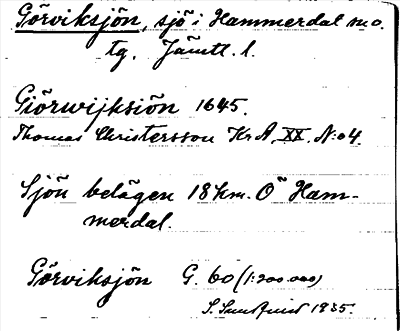 Görviksjön, sjö i Hammerdal sn o.
tg. Jämtl. l.
Giörwijksiön 1645.
Thomas Christersson Kr A, XX, N:o 4.
Sjön belägen 18 km. O Ham-
merdal.
Görviksjön G. 60 (1:200.000)
1935.